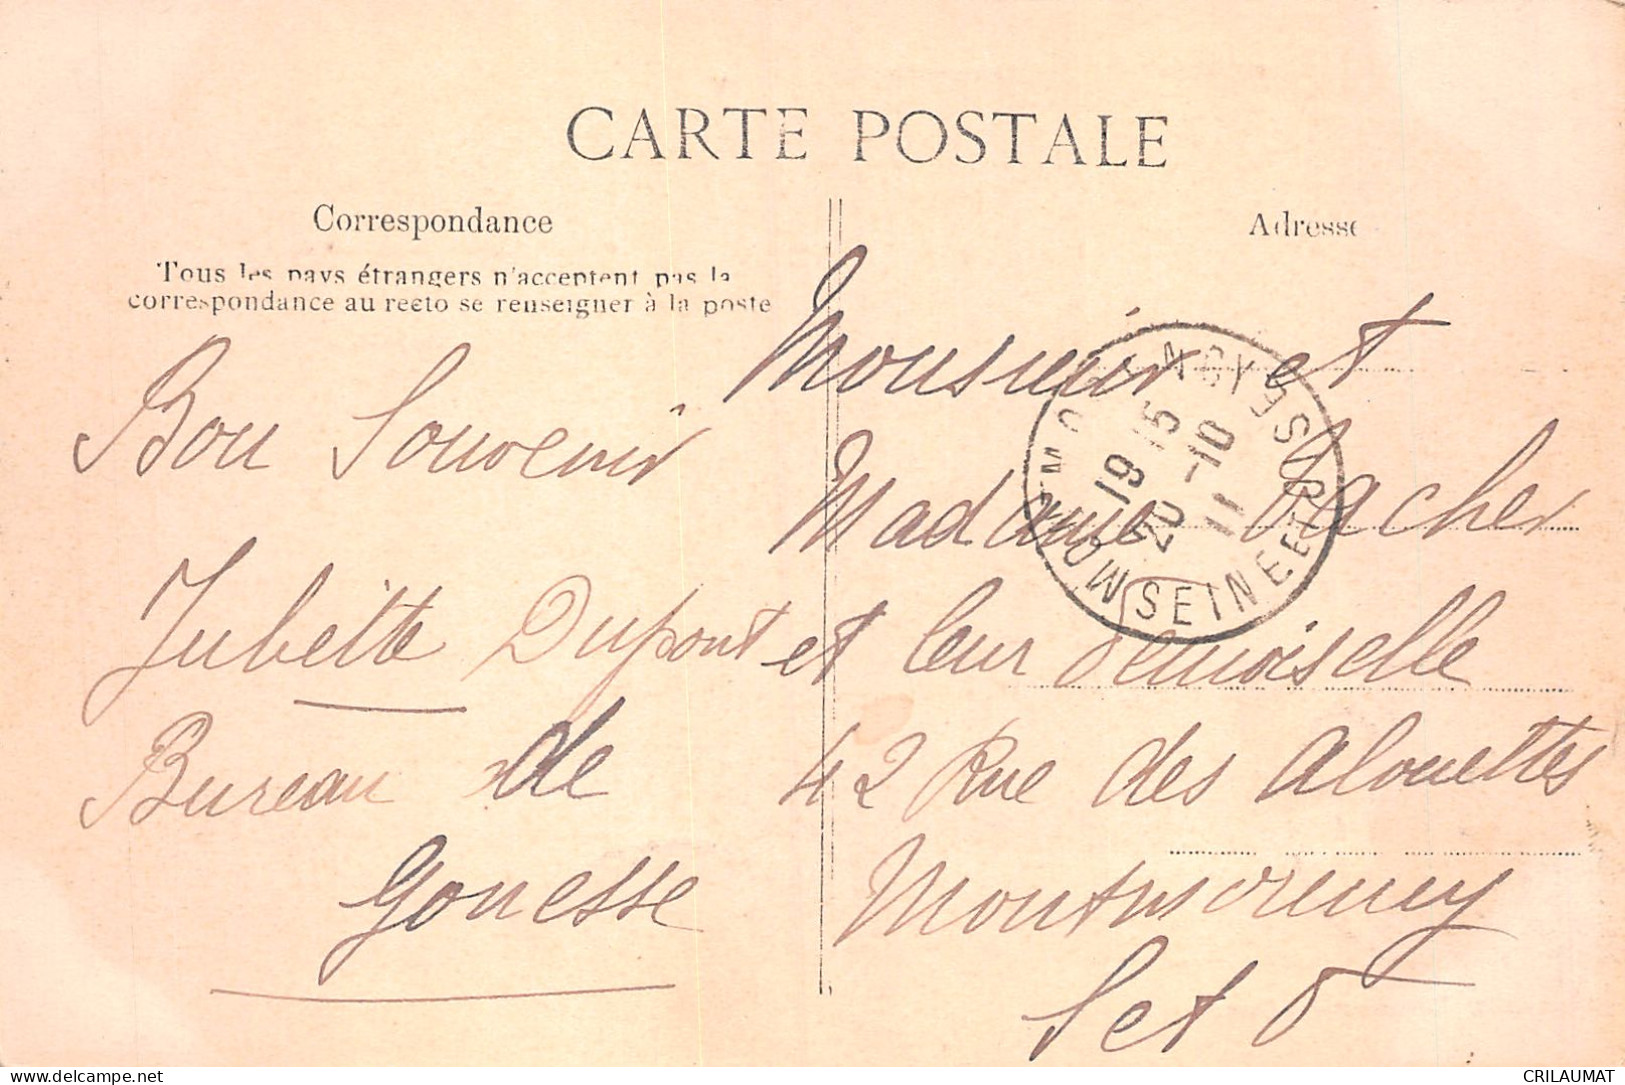 CARTE POSTALE
Correspondance
Tous les pays étrangers n'acceptent pas la
correspondance au recto se renseigner à la poste
Bon Souvenir
Juliette Dupont
Bureau de
Gonesse
Adresse
Monsieur et
Madame Vacher
et leur demoiselle
42 Rue des alouettes
Montmorency
S et O
MONTMORENCY
19 15
20 -10
11
SEINE ET OISE
CRILAUMAT